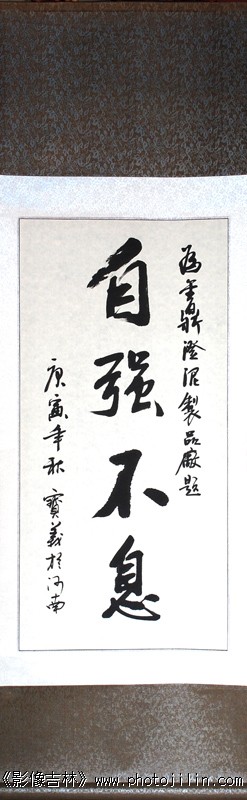 为金鼎澄泥製品厰题
自强不息
庚寅年秋寶義於河南
《影像吉林》www.photojilin.com